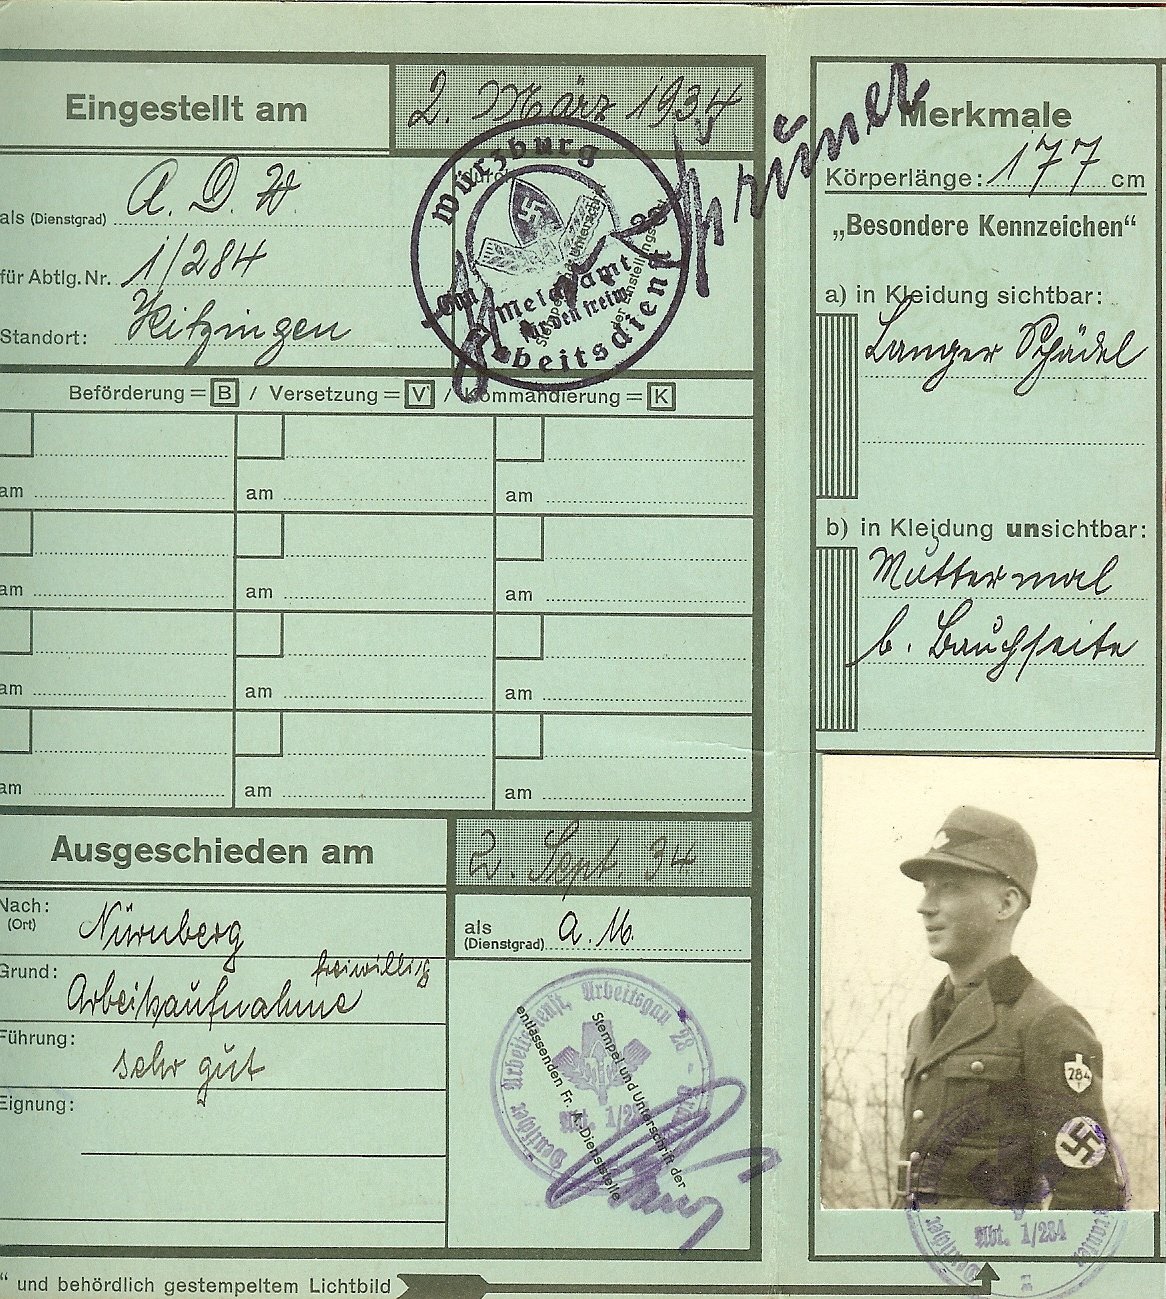 Eingestellt am
2. März 1934
als (Dienstgrad) A. D. W.
für Abtlg. Nr. 1/284
Standort: Kitzingen
Würzburg
Meldeamt
Arbeitsdienst
Beförderung = B / Versetzung = V / Kommandierung = K
am am am
am am am
am am am
am am am
Ausgeschieden am
2. Sept. 34
Nach: (Ort) Nürnberg
als (Dienstgrad) A. M.
Grund: freiwillig
Arbeitsaufnahme
Führung: sehr gut
Eignung:
Deutscher Arbeitsdienst, Arbeitsgau 28
Stempel und Unterschrift der
entlassenden Fr. A.-Dienststelle
“ und behördlich gestempeltem Lichtbild
Merkmale
Körperlänge: 177 cm
„Besondere Kennzeichen“
a) in Kleidung sichtbar:
Langer Schädel
b) in Kleidung unsichtbar:
Muttermal
b. Bauchseite
284
Abt. 1/284